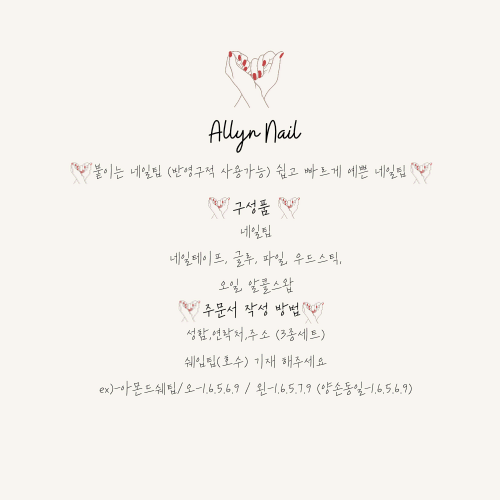 Allyn Nail
붙이는 네일팁 (반영구적 사용가능) 쉽고 빠르게 예쁜 네일팁
구성품
네일팁
네일테이프, 글루, 파일, 우드스틱,
오일, 알콜스왑
주문서 작성 방법
성함,연락처,주소 (3종세트)
쉐입팁(호수) 기재 해주세요
ex)-아몬드쉐팁/오-1,6,5,6,9 / 왼-1,6,5,7,9 (양손동일-1,6,5,6,9)